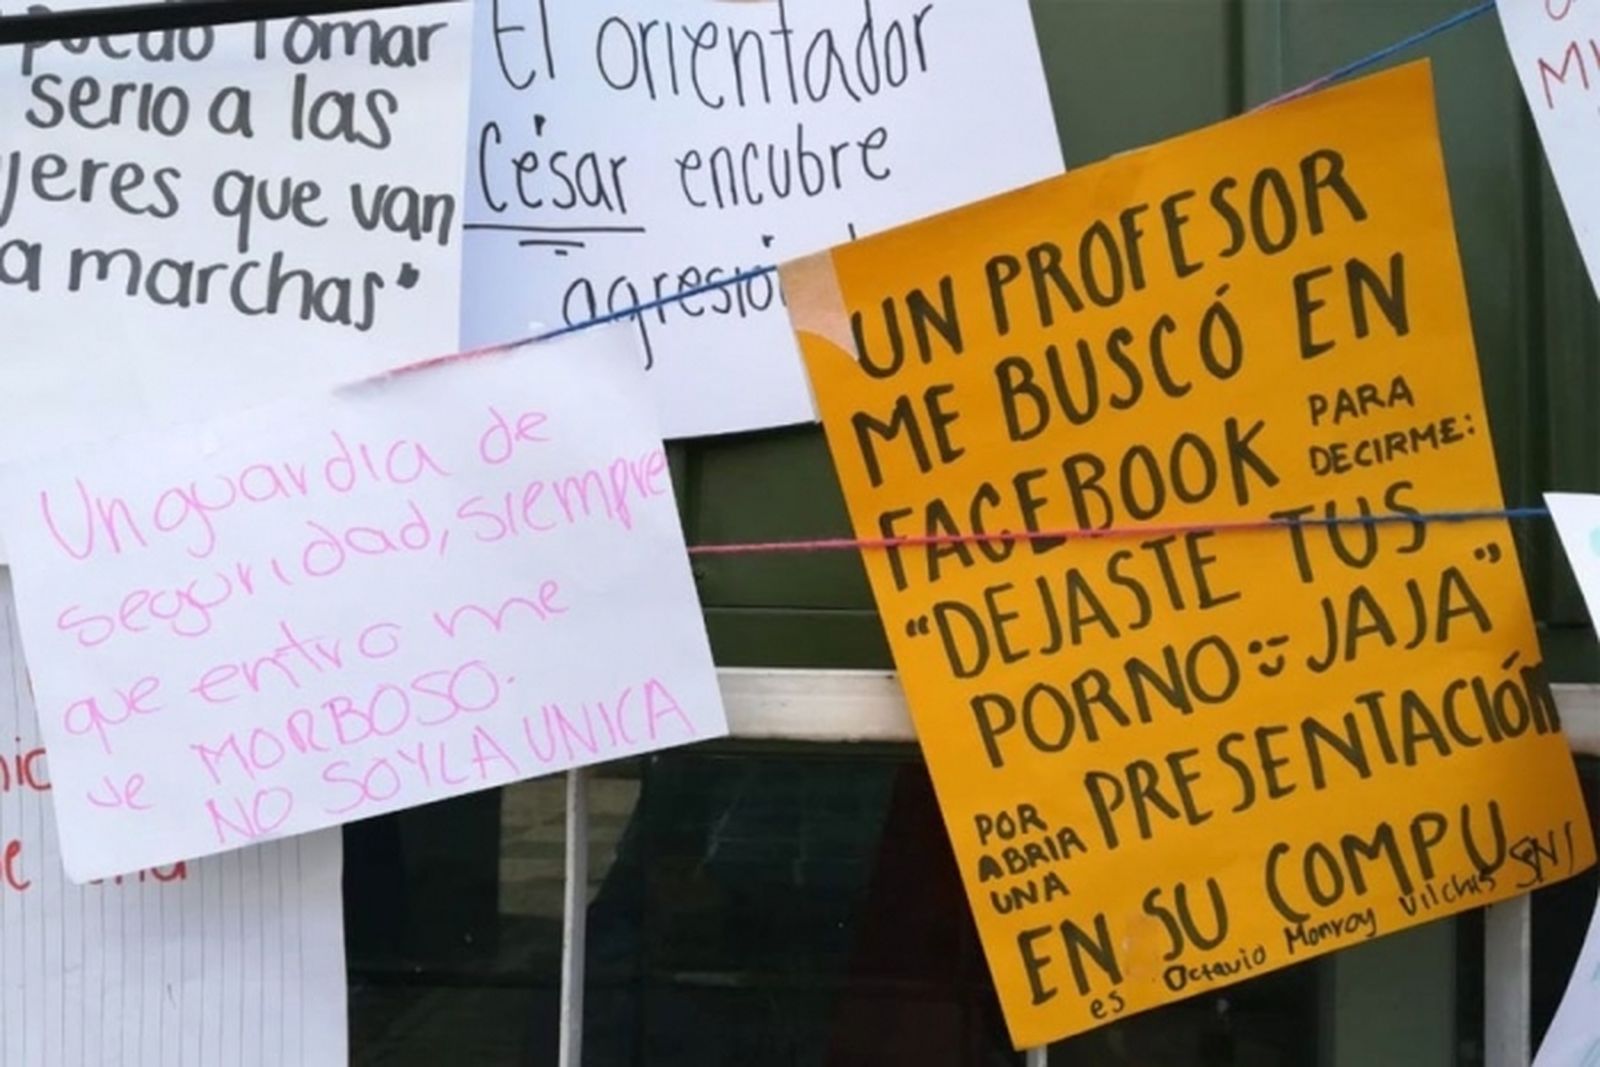 puedo Tomar
serio a las
jeres que van
a marchas"
El orientador
César encubre
agresio
Un guardia de
seguridad, siempre
que entro me
ve MORBOSO.
NO SOY LA UNICA
UN PROFESOR
ME BUSCÓ EN
FACEBOOK PARA
DECIRME:
"DEJASTE TUS
PORNO JAJA"
POR
ABRIR PRESENTACIÓN
UNA
EN SU COMPU
es Octavio Monroy Vilchis SNI